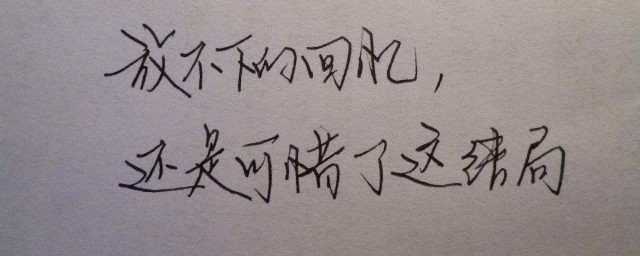 放不下的回忆,
还是可惜了这结局